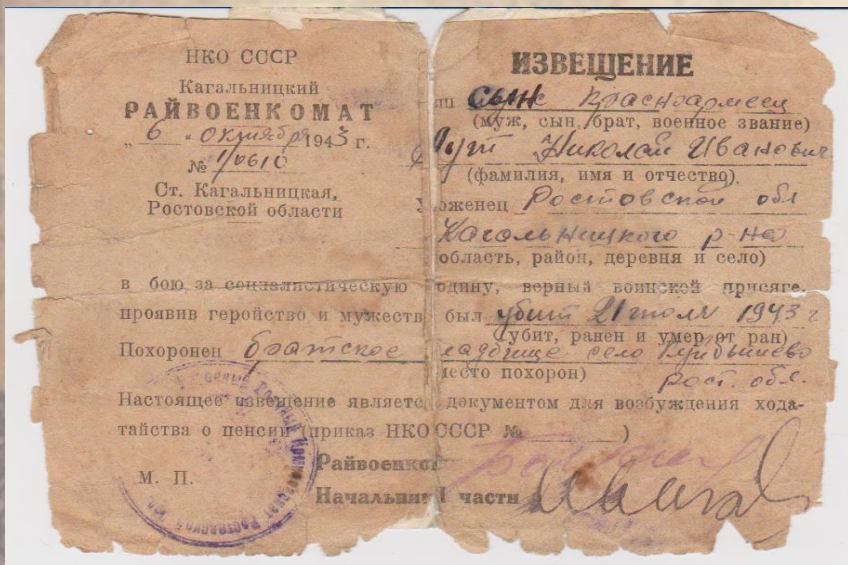 НКО СССР
Кагальницкий
РАЙВОЕНКОМАТ
„ 6 " октября 1943 г.
№ 1/0610
Ст. Кагальницкая,
Ростовской области
ИЗВЕЩЕНИЕ
сын красноармеец
(муж, сын, брат, военное звание)
Николай Иванович
(фамилия, имя и отчество)
женец Ростовской обл
Кагальницкого р-на
область, район, деревня и село)
в бою за социалистическую одину, верный воинской присяге,
проявив геройство и мужеств был убит 21 июля 1943 г
(убит, ранен и умер от ран)
Похоронен братское кладбище село Куйбышево
место похорон) рост. обл.
Настоящее извещение являетс документом для возбуждения хода-
тайства о пенсии (приказ НКО СССР № )
М. П.
Райвоенко
Начальник части